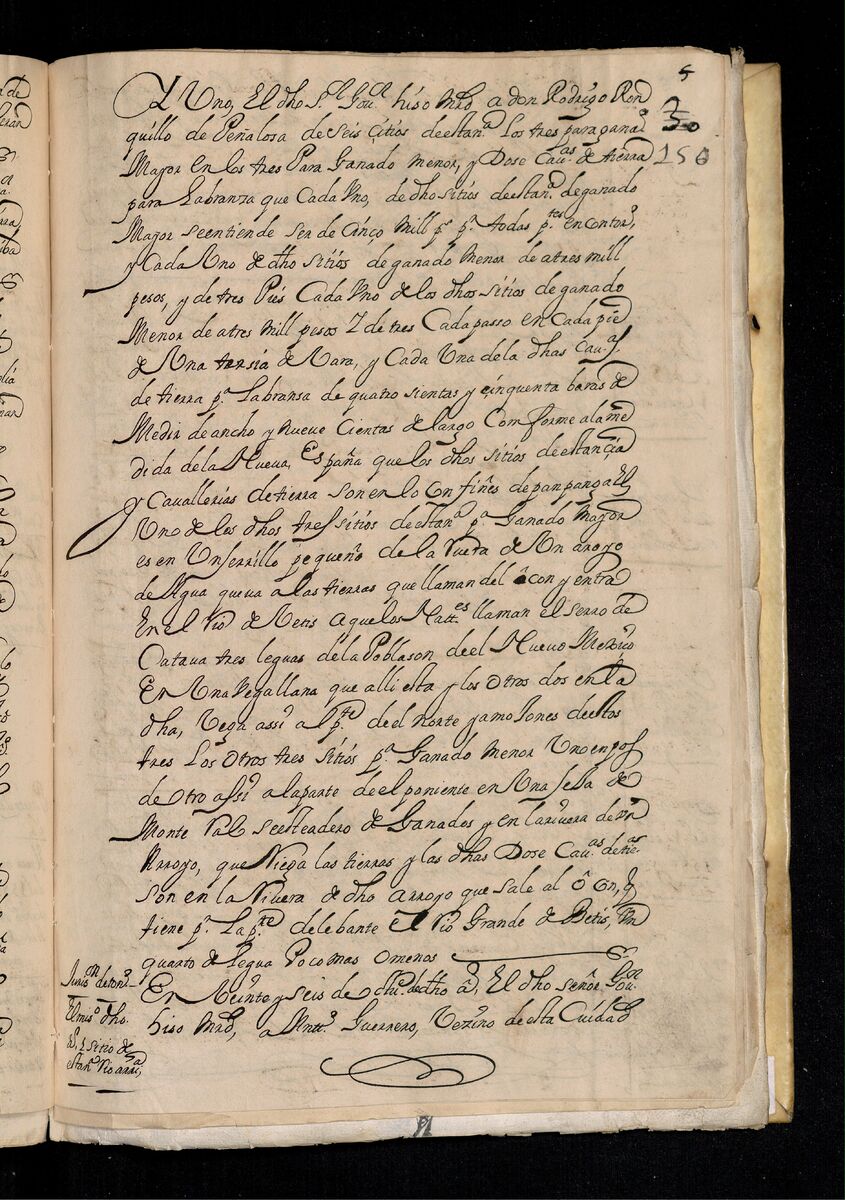 5
30
156
Y Uno, El dho S.or Gou.or hiso Mrd a don Rodrigo Ron
quillo de Peñalosa de seis sitios de estan.a Los tres para gana.o
Mayor en los tres Para Ganado menor, y Dose Cau.as de tierra
para Labranza que Cada Uno, de dho sitios de estan.a de ganado
Mayor se entiende ser de Cinco Mill p.s p.r todas p.tes en contor.o
y Cada Uno de dho Sitios de ganado Menor de a tres mill
pesos, y de tres Pies Cada Uno de los dhos sitios de ganado
Menor de a tres Mill pesos Y de tres Cada passo en Cada pie
de Una tersia de Vara, y Cada Una de la dhas Cau.s
de tierra p.a Labransa de quatro sientas y cinquenta baras de
Medir de ancho y Nueve Cientas de largo Comforme a la me
dida de la Nueva, España que los dhos sitios de estançia
y Cavallerias de tierra son en lo Confines de panpanga El
Uno de los dhos tres sitios de estan.a p.a Ganado Mayor
es en Un serrillo pequeño de la Vuera de Un arroyo
de Agua que va a las tierras que llaman del ocon y entra
En el Rio de Betis a que los Natt.es llaman el serro de
Catava tres leguas de la Poblason de el Nuevo Mexico
En Una Vega llana que alli esta y los Otros dos en la
dha, Vega assi a l p.te de el norte y amojones de estos
tres Los Otros tres Sitios p.a Ganado Menor Uno en pos
de Otro assi a la parte de el poniente en Una seja de
Monte Ral sesteadero de Ganados y en la rivera de Un
Arroyo, que Riega las tierras y las dhas Dose Cau.as de tie.as
son en la Rivera de dho arroyo que sale al Ocon, q
tiene p.r La p.te de lebante el Rio Grande de Betis, Un
quarto de Legua Poco mas o menos
En Veinte y seis de octu.e de dho a.o, El dho señor Gou.or
hiso Mrd, a Antt.o Guerrero, Vezino de esta Cuidad
Juris.on de ton.do
El mis.o dho.
a.o, 1 sitio de
estan.a Rio arri.ba